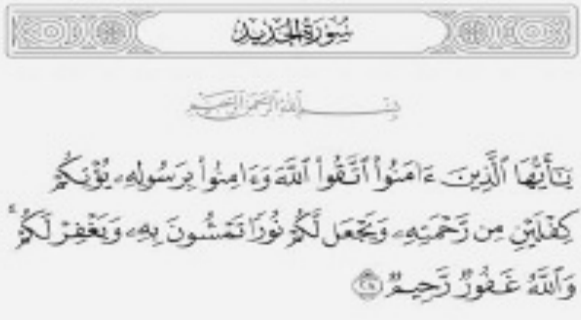 سُورَةُ الحَدِيد
بِسْمِ ٱللَّهِ ٱلرَّحْمَٰنِ ٱلرَّحِيمِ
يَٰٓأَيُّهَا ٱلَّذِينَ ءَامَنُوا۟ ٱتَّقُوا۟ ٱللَّهَ وَءَامِنُوا۟ بِرَسُولِهِۦ يُؤْتِكُمْ
كِفْلَيْنِ مِن رَّحْمَتِهِۦ وَيَجْعَل لَّكُمْ نُورًا تَمْشُونَ بِهِۦ وَيَغْفِرْ لَكُمْ ۚ
وَٱللَّهُ غَفُورٌ رَّحِيمٌ ٢٨